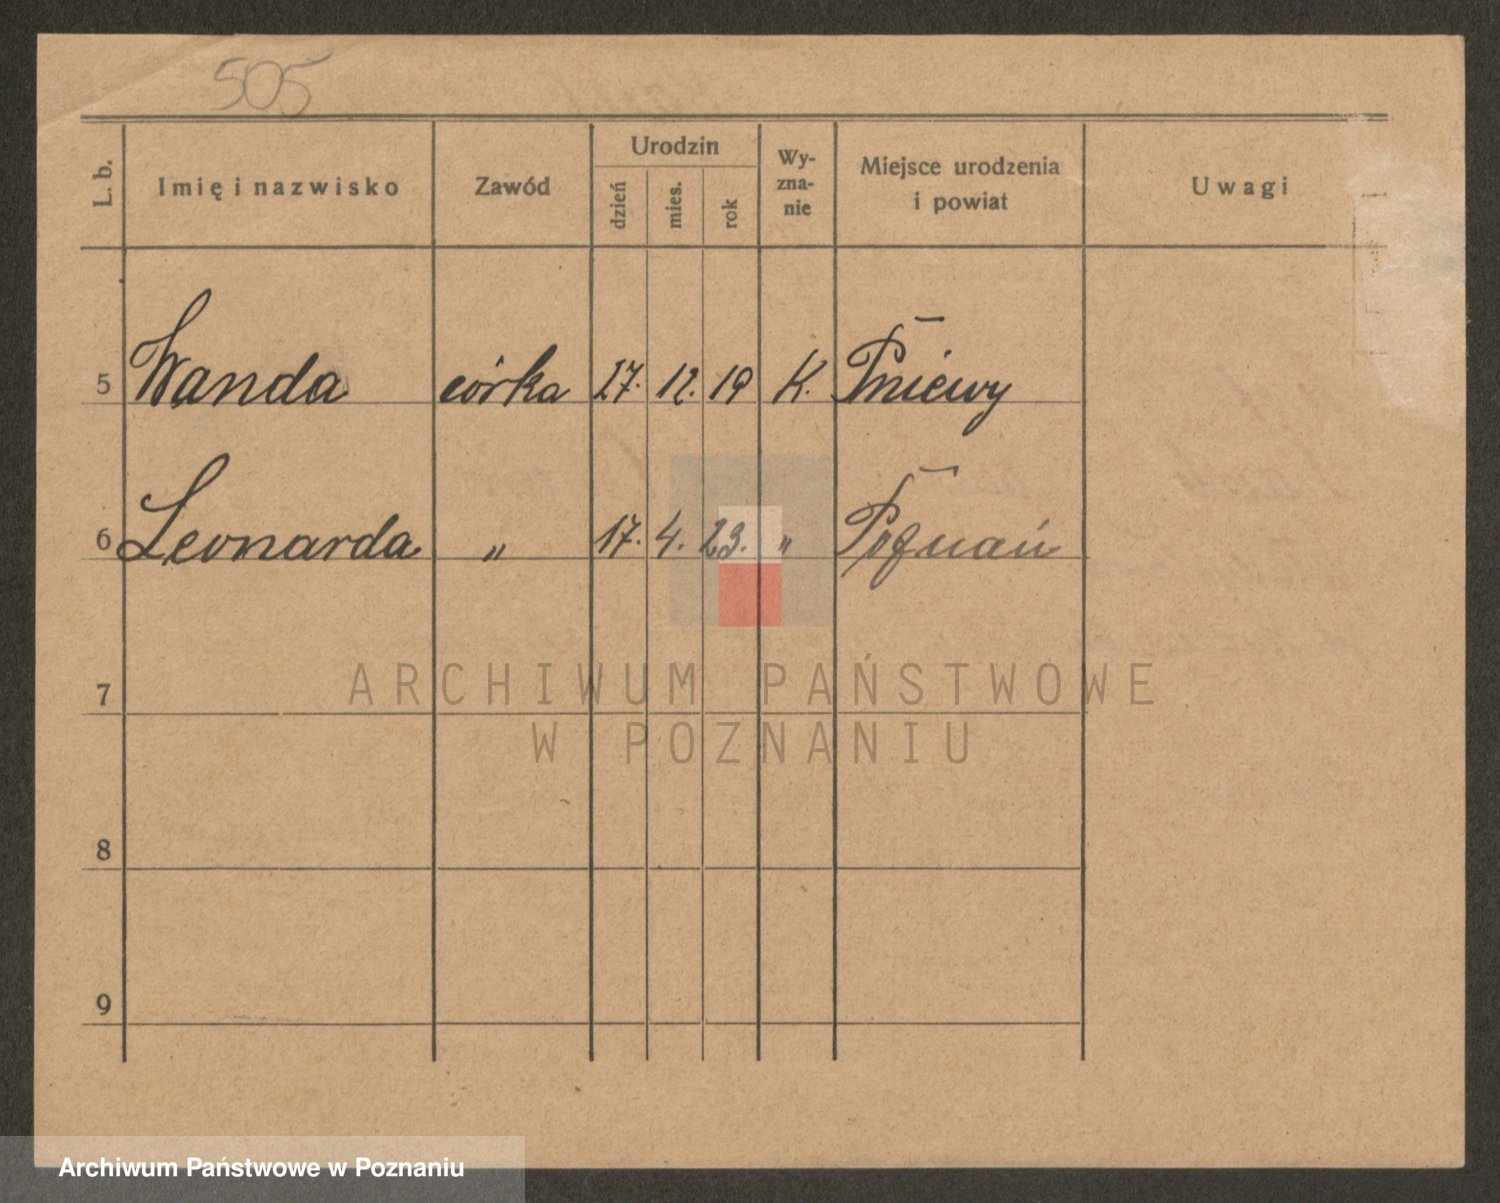 505
L. b. Imię i nazwisko Zawód Urodzin dzień mies. rok Wy-zna-nie Miejsce urodzenia i powiat Uwagi
5 Wanda córka 27. 12. 19 K. Pniewy
6 Leonarda " 17. 4. 23. " Poznań
7
8
9
ARCHIWUM PAŃSTWOWE
W POZNANIU
Archiwum Państwowe w Poznaniu